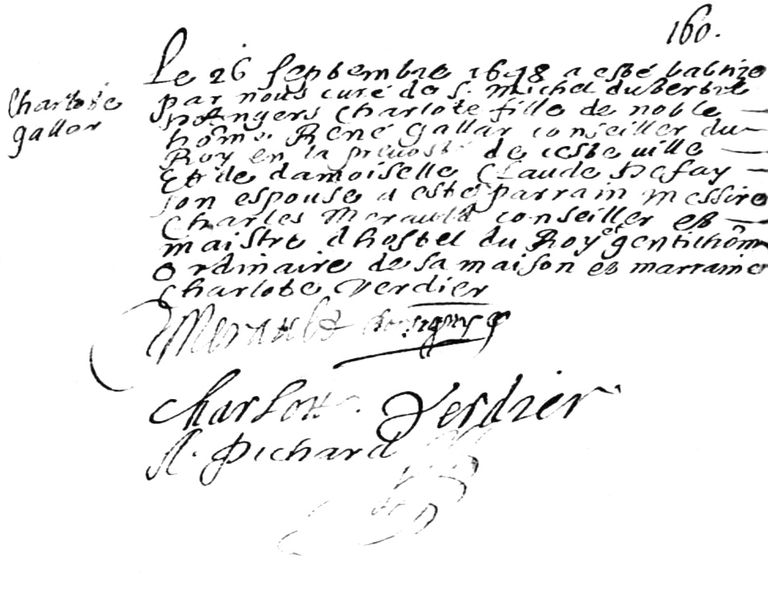 160.
Charlote
gallar
Le 26 Septembre 1648 a esté babtize
par nous curé de S. Michel du Tertre
d'Angers Charlote fille de noble
hôme René Gallar conseiller du
Roy en la prevosté de ceste ville
Et de damoiselle Claude Defay
son espouse a esté parrain messire
Charles Merault conseiller et
maistre d'hostel du Roy et gentilhôme
ordinaire de sa maison et marraine
Charlote Verdier
Merault
Charlotte Verdier
Pichard